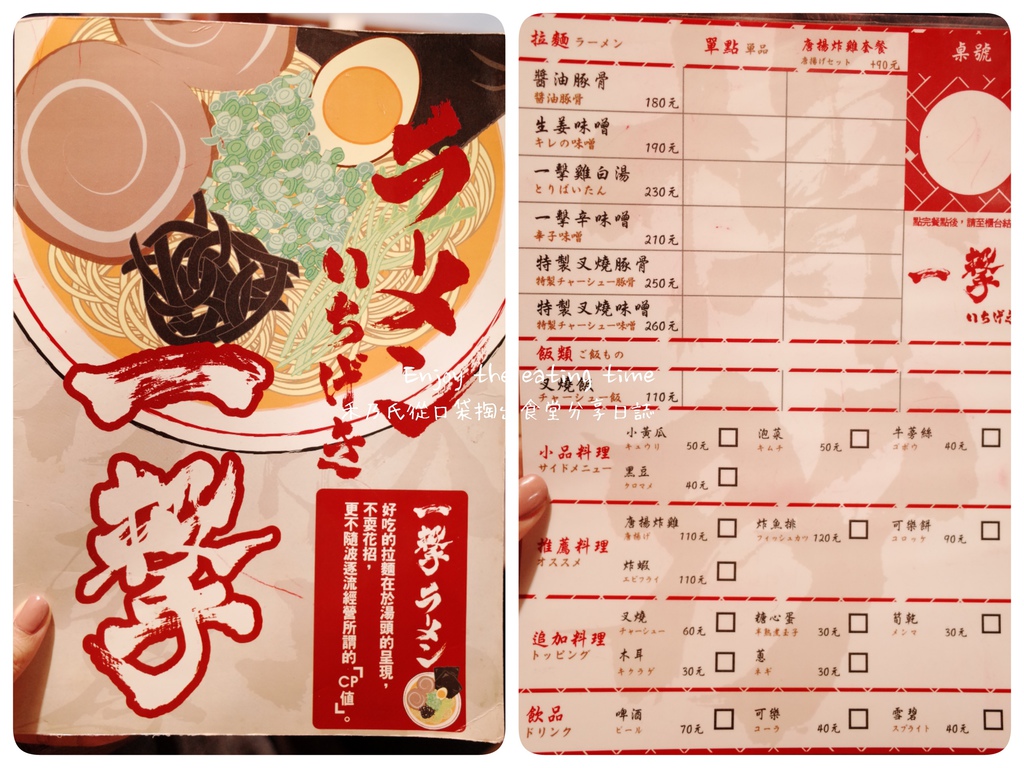 ラーメン
いちげき
一撃
一撃ラーメン
好吃的拉麵在於湯頭的呈現，
不耍花招，
更不隨波逐流經營所謂的「CP值」。
Enjoy the eating time
米乃氏從口袋掏出食堂分享日誌
拉麵 ラーメン
單點 單品
唐揚炸雞套餐
唐揚げセット +90元
桌號
醬油豚骨
醬油豚骨 180元
生姜味噌
キレの味噌 190元
一擊雞白湯
とりぱいたん 230元
一擊辛味噌
辛子味噌 210元
特製叉燒豚骨
特製チャーシュー豚骨 250元
特製叉燒味噌
特製チャーシュー味噌 260元
點完餐點後，請至櫃台結
一撃
いちげき
飯類 ご飯もの
叉燒飯
チャーシュー飯 110元
小品料理
サイドメニュー
小黃瓜
キュウリ 50元
泡菜
キムチ 50元
牛蒡絲
ゴボウ 40元
黑豆
クロマメ 40元
推薦料理
オススメ
唐揚炸雞
唐揚げ 110元
炸魚排
フィッシュカツ 120元
可樂餅
コロッケ 90元
炸蝦
エビフライ 110元
追加料理
トッピング
叉燒
チャーシュー 60元
糖心蛋
半熟煮玉子 30元
筍乾
メンマ 30元
木耳
キクラゲ 30元
蔥
ネギ 30元
飲品
ドリンク
啤酒
ビール 70元
可樂
コーラ 40元
雪碧
スプライト 40元